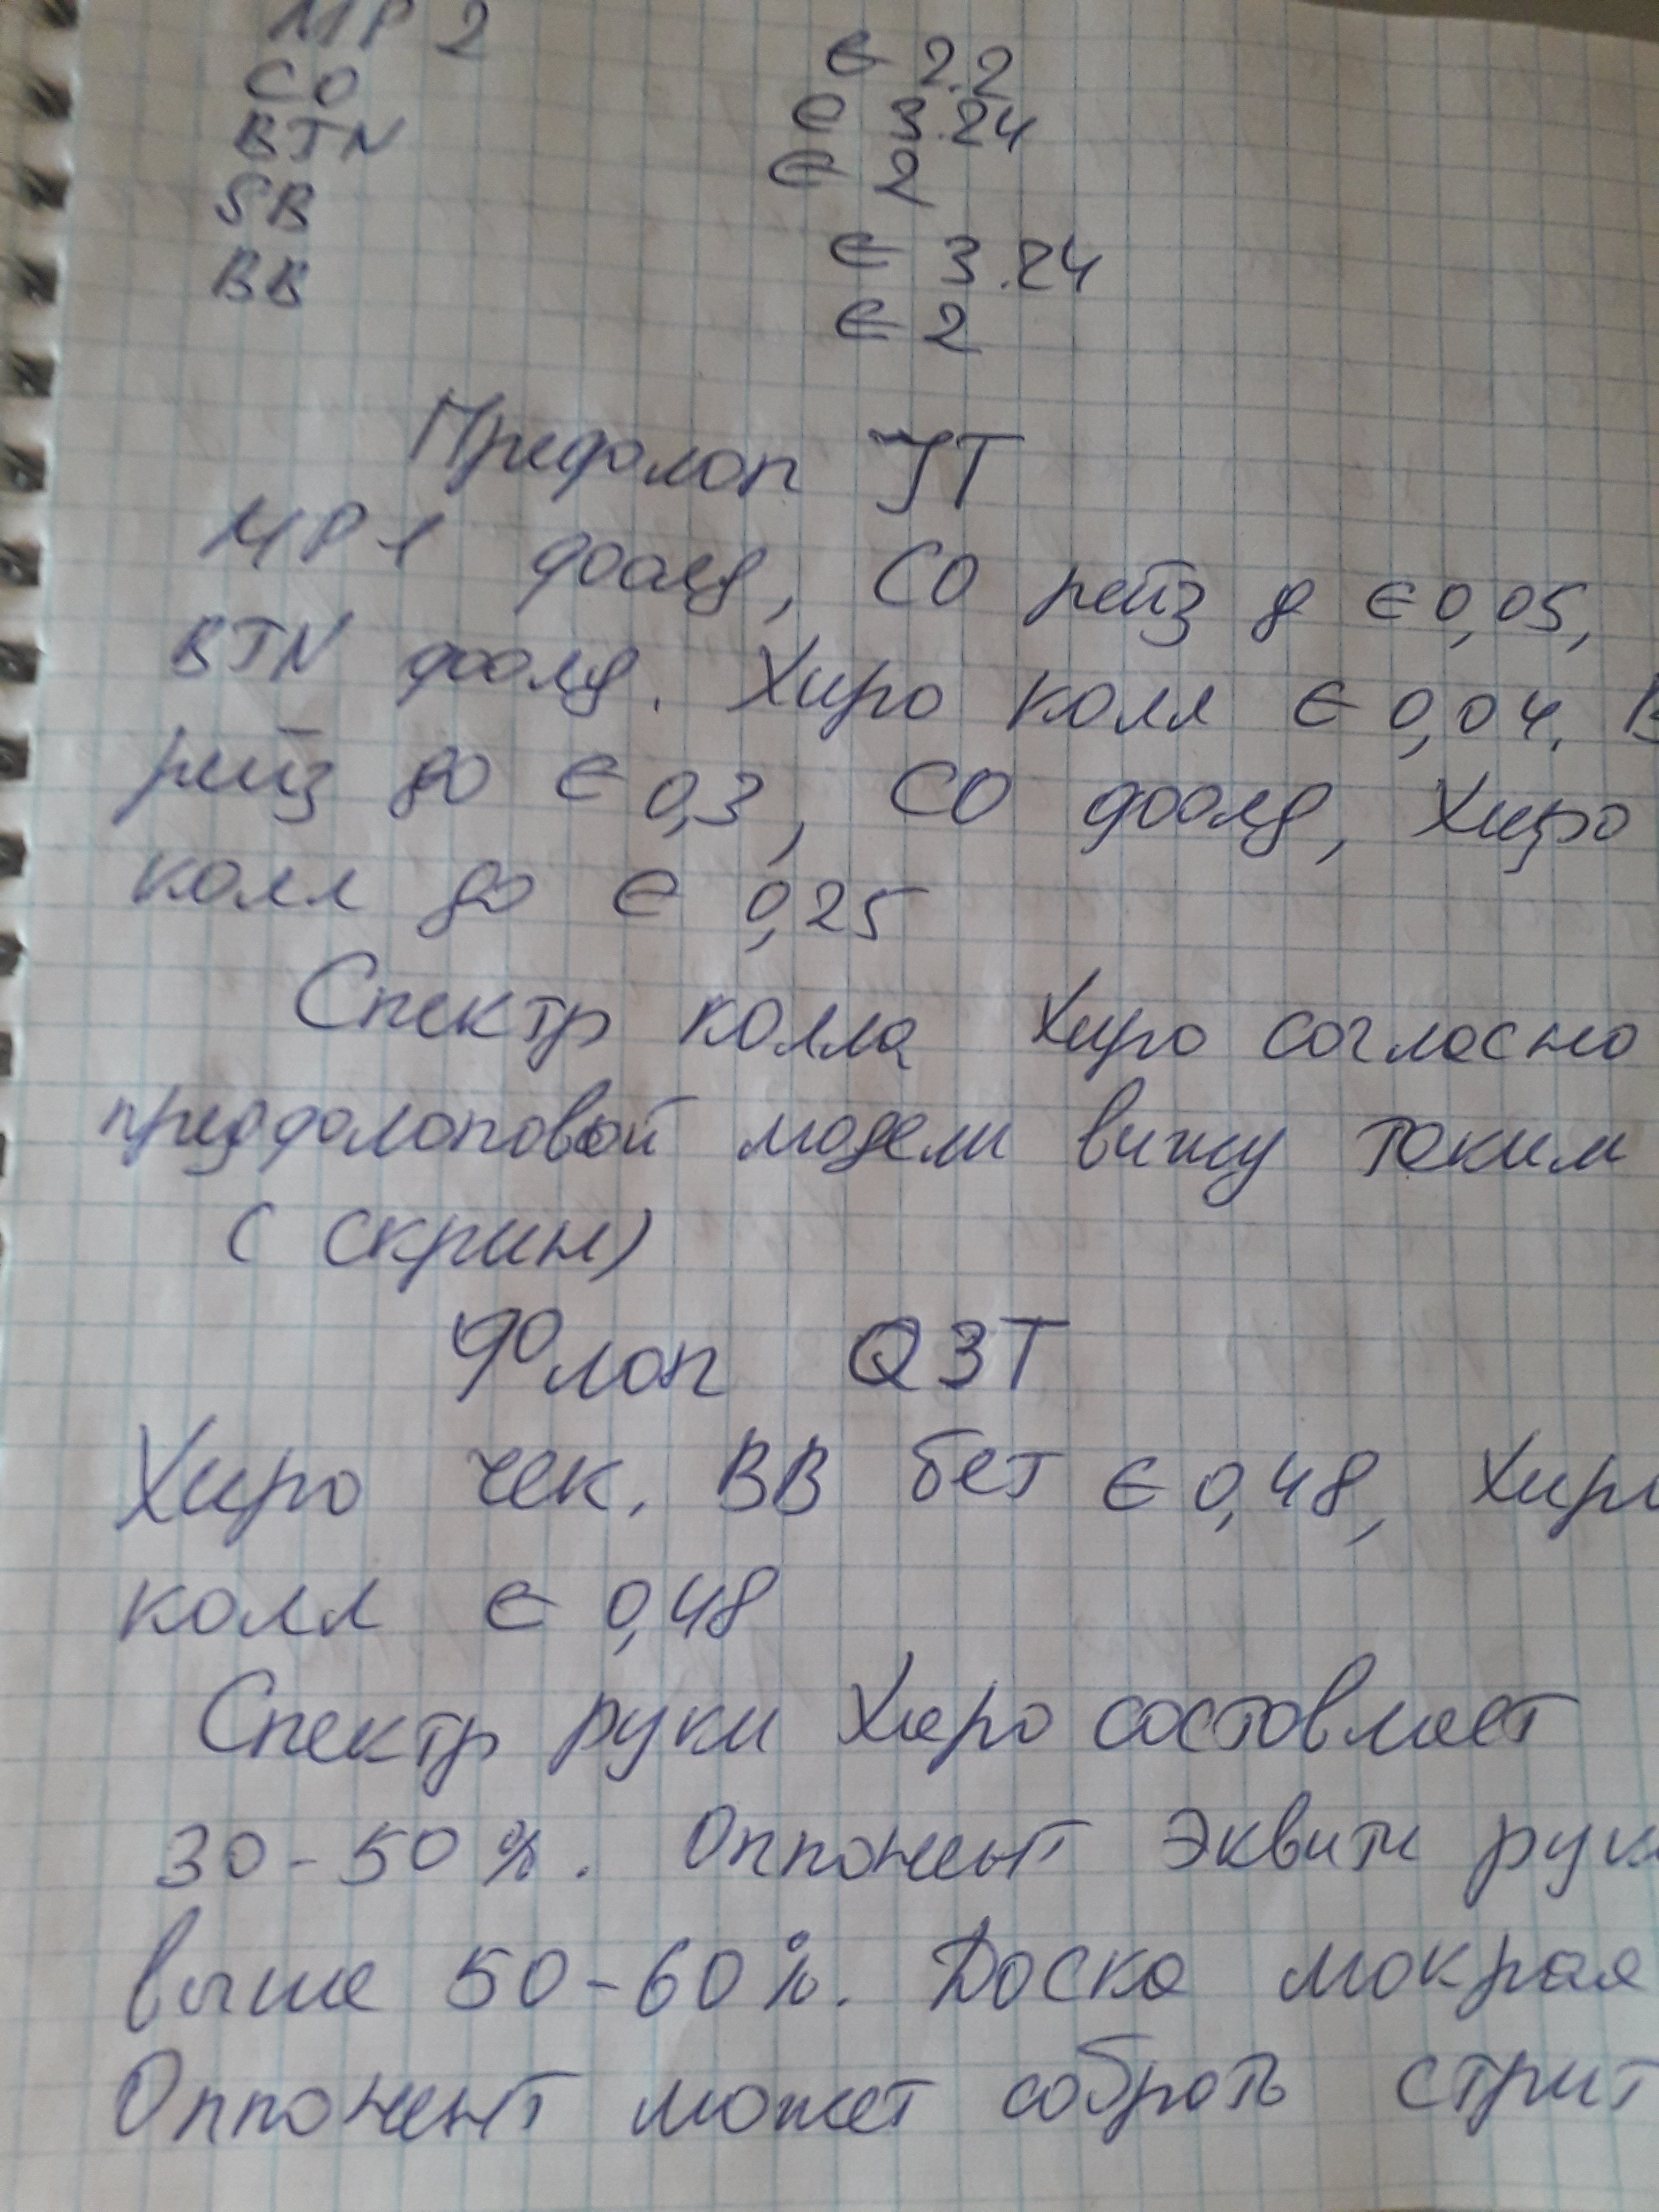 MP 2
€ 2.2
CO
€ 3.24
BTN
€ 2
SB
€ 3.24
BB
€ 2
Префлоп JT
MP1 фолд, CO рейз д €0,05,
BTN фолд. Хиро колл €0,04. B
рейз до €0,3, CO фолд, Хиро
колл до € 0,25
Спектр колла Хиро согласно
предфлоповой модели вижу таким
(скрин)
Флоп Q3T
Хиро чек. BB бет €0,48, Хиро
колл € 0,48
Спектр руки Хиро состовляет
30-50%. Оппонент эквити рук
выше 50-60%. Доска мокрая
Оппонент может собрать стрит